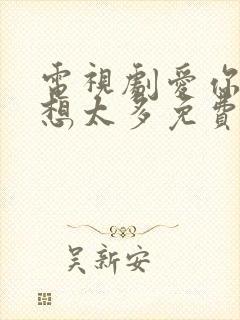 電視劇愛你
想太多免費
吳新安